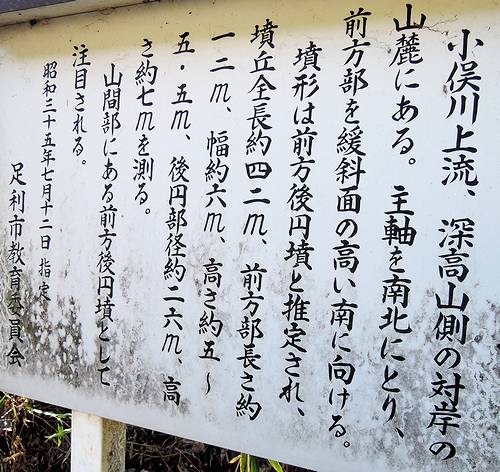 小俣川上流、深高山側の対岸の
山麓にある。主軸を南北にとり、
前方部を緩斜面の高い南に向ける。
墳形は前方後円墳と推定され、
墳丘全長約四二m、前方部長さ約
一二m、幅約六m、高さ約五～
五・五m、後円部径約二六m、高
さ約七mを測る。
山間部にある前方後円墳として
注目される。
昭和三十五年七月十二日 指定
足利市教育委員会